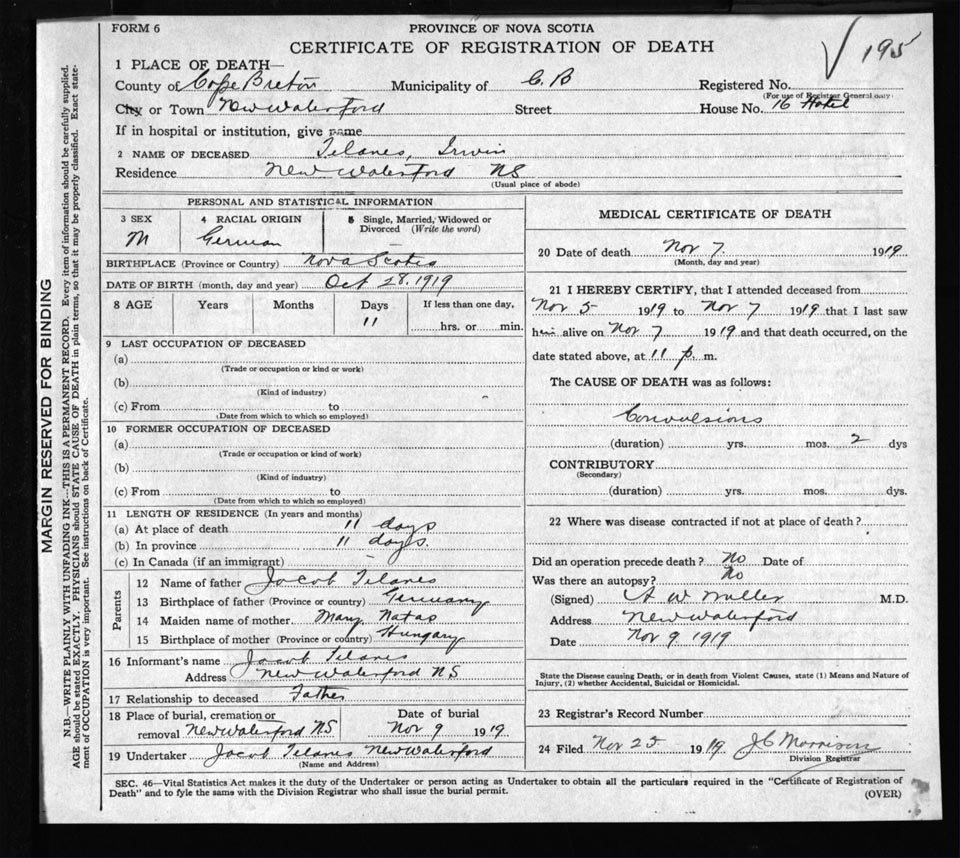 FORM 6
PROVINCE OF NOVA SCOTIA
CERTIFICATE OF REGISTRATION OF DEATH
195
1 PLACE OF DEATH—
County of Cape Breton Municipality of C. B Registered No.
(For use of Registrar General only)
City or Town New Waterford Street House No. 16 Hotel
If in hospital or institution, give name
2 NAME OF DECEASED Telanes, Irwin
Residence New Waterford NS
(Usual place of abode)
PERSONAL AND STATISTICAL INFORMATION
3 SEX 4 RACIAL ORIGIN 5 Single, Married, Widowed or Divorced (Write the word)
M German —
BIRTHPLACE (Province or Country) Nova Scotia
DATE OF BIRTH (month, day and year) Oct 28. 1919
8 AGE Years Months Days If less than one day,
11 hrs. or min.
9 LAST OCCUPATION OF DECEASED
(a)
(Trade or occupation or kind or work)
(b)
(Kind of industry)
(c) From to
(Date from which to which so employed)
10 FORMER OCCUPATION OF DECEASED
(a)
(Trade or occupation or kind of work)
(b)
(Kind of industry)
(c) From to
(Date from which to which so employed)
11 LENGTH OF RESIDENCE (In years and months)
(a) At place of death 11 days
(b) In province 11 days.
(c) In Canada (if an immigrant)
Parents
12 Name of father Jacob Telanes
13 Birthplace of father (Province or country) Germany
14 Maiden name of mother Mary Natas
15 Birthplace of mother (Province or country) Hungary
16 Informant's name Jacob Telanes
Address New Waterford NS
17 Relationship to deceased Father
18 Place of burial, cremation or removal New Waterford NS Date of burial Nov 9 1919
19 Undertaker Jacob Telanes New Waterford
(Name and Address)
MEDICAL CERTIFICATE OF DEATH
20 Date of death Nov 7. 1919
(Month, day and year)
21 I HEREBY CERTIFY, that I attended deceased from
Nov 5 1919 to Nov 7 1919 that I last saw
him alive on Nov 7 1919 and that death occurred, on the
date stated above, at 11 p. m.
The CAUSE OF DEATH was as follows:
Convulsions
(duration) yrs. mos. 2 dys
CONTRIBUTORY
(Secondary)
(duration) yrs. mos. dys.
22 Where was disease contracted if not at place of death?
Did an operation precede death? No Date of
Was there an autopsy? No
(Signed) A W Miller M.D.
Address New Waterford
Date Nov 9 1919
State the Disease causing Death, or in death from Violent Causes, state (1) Means and Nature of
Injury, (2) whether Accidental, Suicidal or Homicidal.
23 Registrar's Record Number
24 Filed Nov 25 1919. J C Morrison
Division Registrar
SEC. 46—Vital Statistics Act makes it the duty of the Undertaker or person acting as Undertaker to obtain all the particulars required in the "Certificate of Registration of
Death" and to fyle the same with the Division Registrar who shall issue the burial permit.
(OVER)
MARGIN RESERVED FOR BINDING
N.B.—WRITE PLAINLY WITH UNFADING INK—THIS IS A PERMANENT RECORD. Every item of information should be carefully supplied.
AGE should be stated EXACTLY. PHYSICIANS should STATE CAUSE OF DEATH in plain terms, so that it may be properly classified. Exact state-
ment of OCCUPATION is very important. See instructions on back of Certificate.